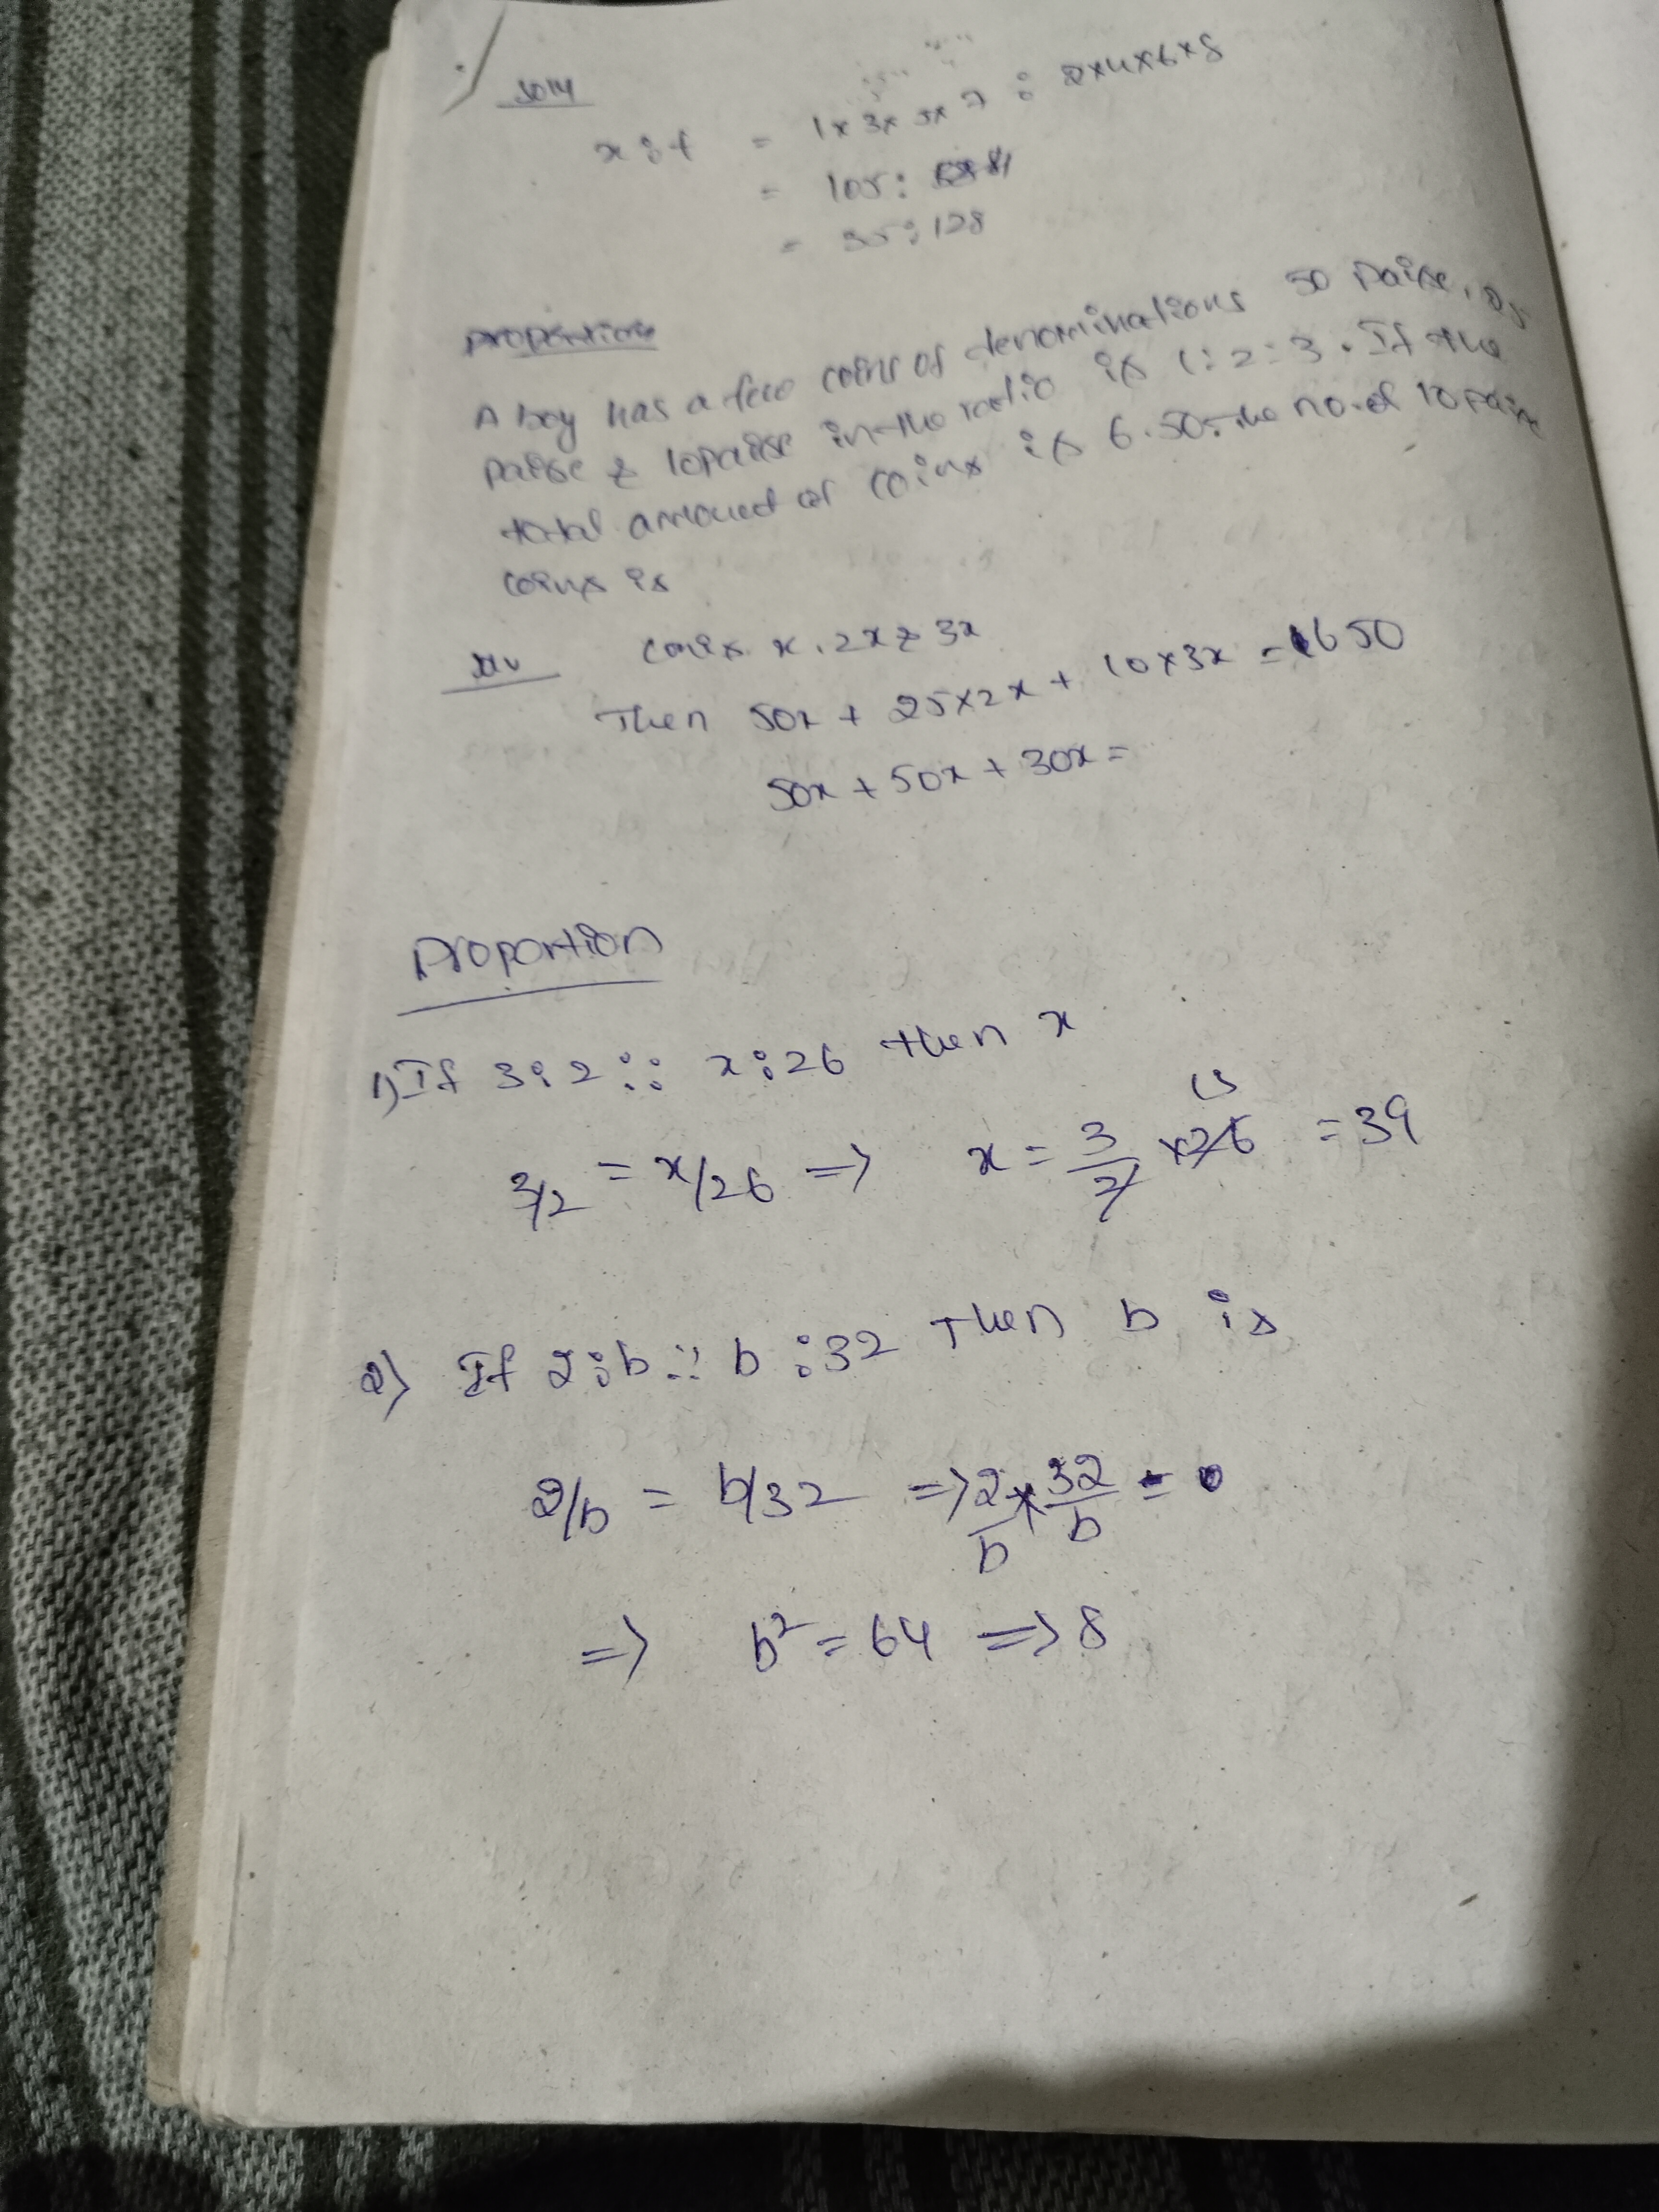 Soln
x : y = 1 x 3 x 5 x 7 : 2 x 4 x 6 x 8
= 105 :
= 35 : 128
Proportion
A boy has a few coins of denominations 50 paise, 25
paise & 10paise in the ratio is 1 : 2 : 3 . If the
total amount of coins is 6.50. The no. of 10 paise
coins is
coins x, 2x & 3x
Then 50x + 25x2x + 10x3x = 650
50x + 50x + 30x =
Proportion
1) If 3:2 :: x:26 then x
3/2 = x/26 => x = 3/2 x 26 13 = 39
2) If 2:b :: b:32 Then b is
2/b = b/32 => 2/b x 32/b =
=> b² = 64 => 8